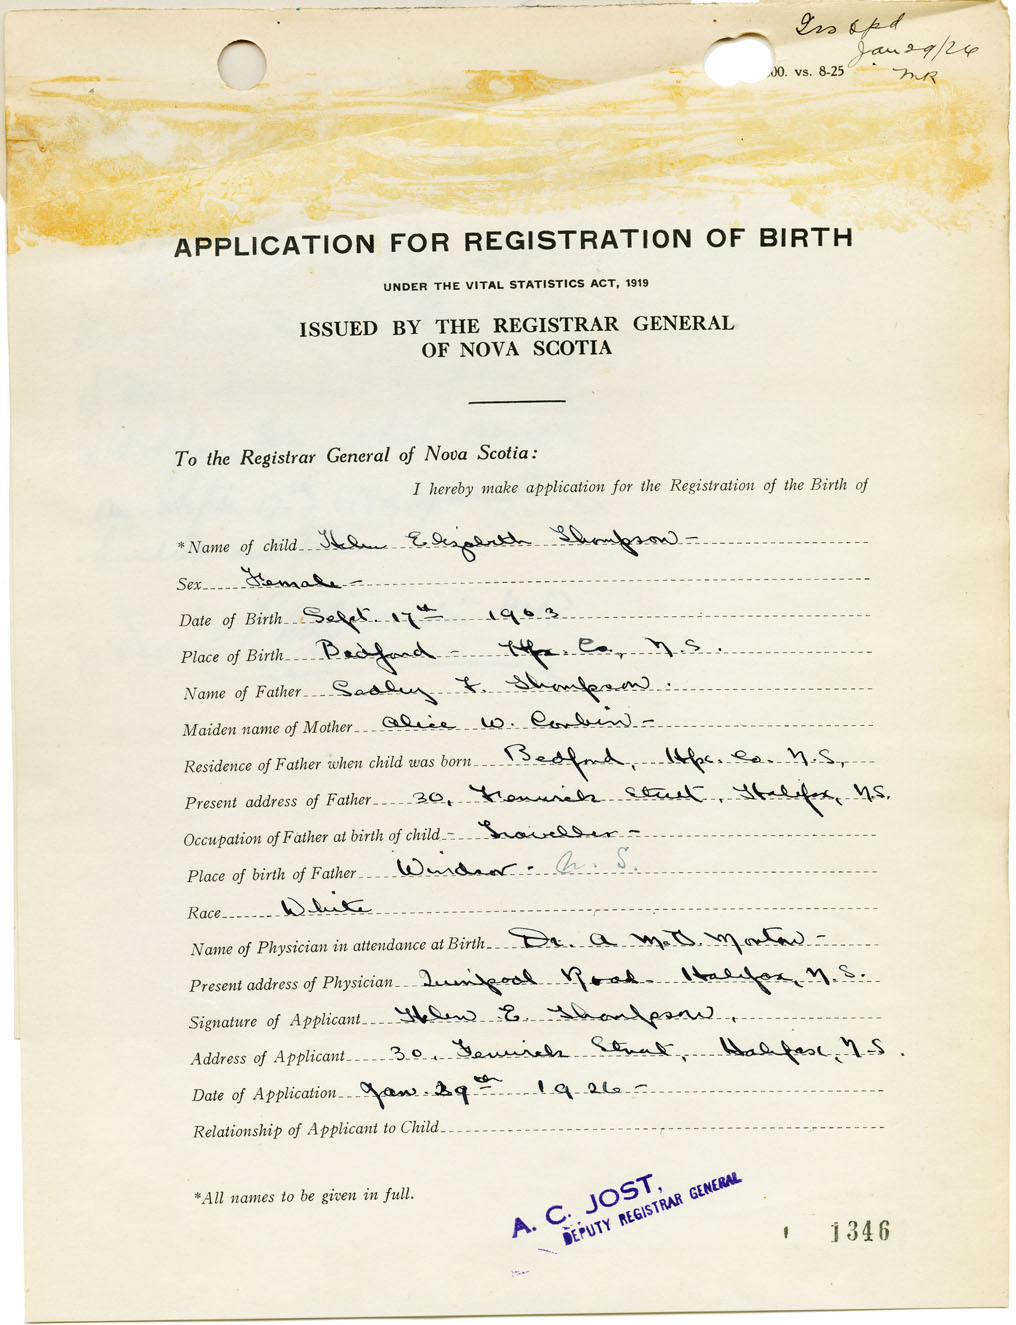 Jan 29/26
00. vs. 8-25
MR
APPLICATION FOR REGISTRATION OF BIRTH
UNDER THE VITAL STATISTICS ACT, 1919
ISSUED BY THE REGISTRAR GENERAL
OF NOVA SCOTIA
To the Registrar General of Nova Scotia:
I hereby make application for the Registration of the Birth of
*Name of child Helen Elizabeth Thompson -
Sex Female -
Date of Birth Sept. 17th 1903
Place of Birth Bedford - Hfx. Co., N.S.
Name of Father Sedley F. Thompson.
Maiden name of Mother Alice W. Corbin -
Residence of Father when child was born Bedford, Hfx. Co. N.S,
Present address of Father 30, Fenwick Street, Halifax, N.S.
Occupation of Father at birth of child - Traveller -
Place of birth of Father Windsor - N. S.
Race White
Name of Physician in attendance at Birth Dr. A McD. Morton -
Present address of Physician Quinpool Road - Halifax, N.S.
Signature of Applicant Helen E. Thompson,
Address of Applicant 30, Fenwick Street, Halifax, N-S.
Date of Application Jan. 29th 1926 -
Relationship of Applicant to Child
*All names to be given in full.
A. C. JOST,
DEPUTY REGISTRAR GENERAL
1346